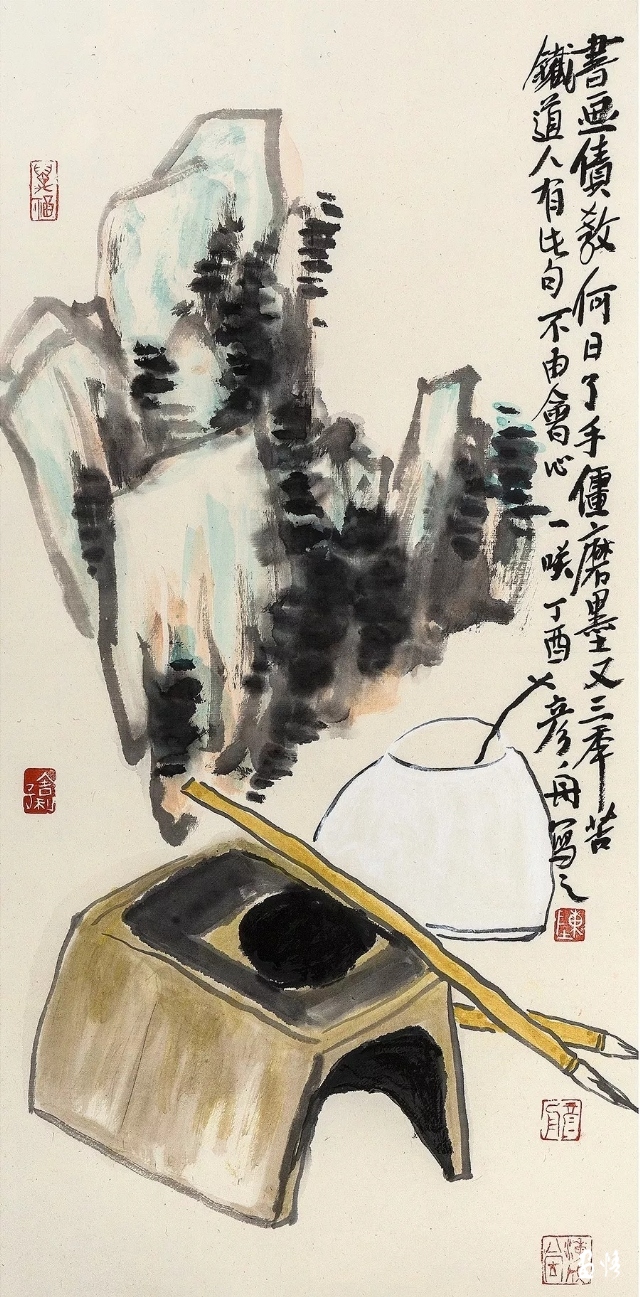 書画債教何日了手僵磨墨又三年苦
鐵道人有此句不由會心一咲丁酉彥舟寫之
舍利子